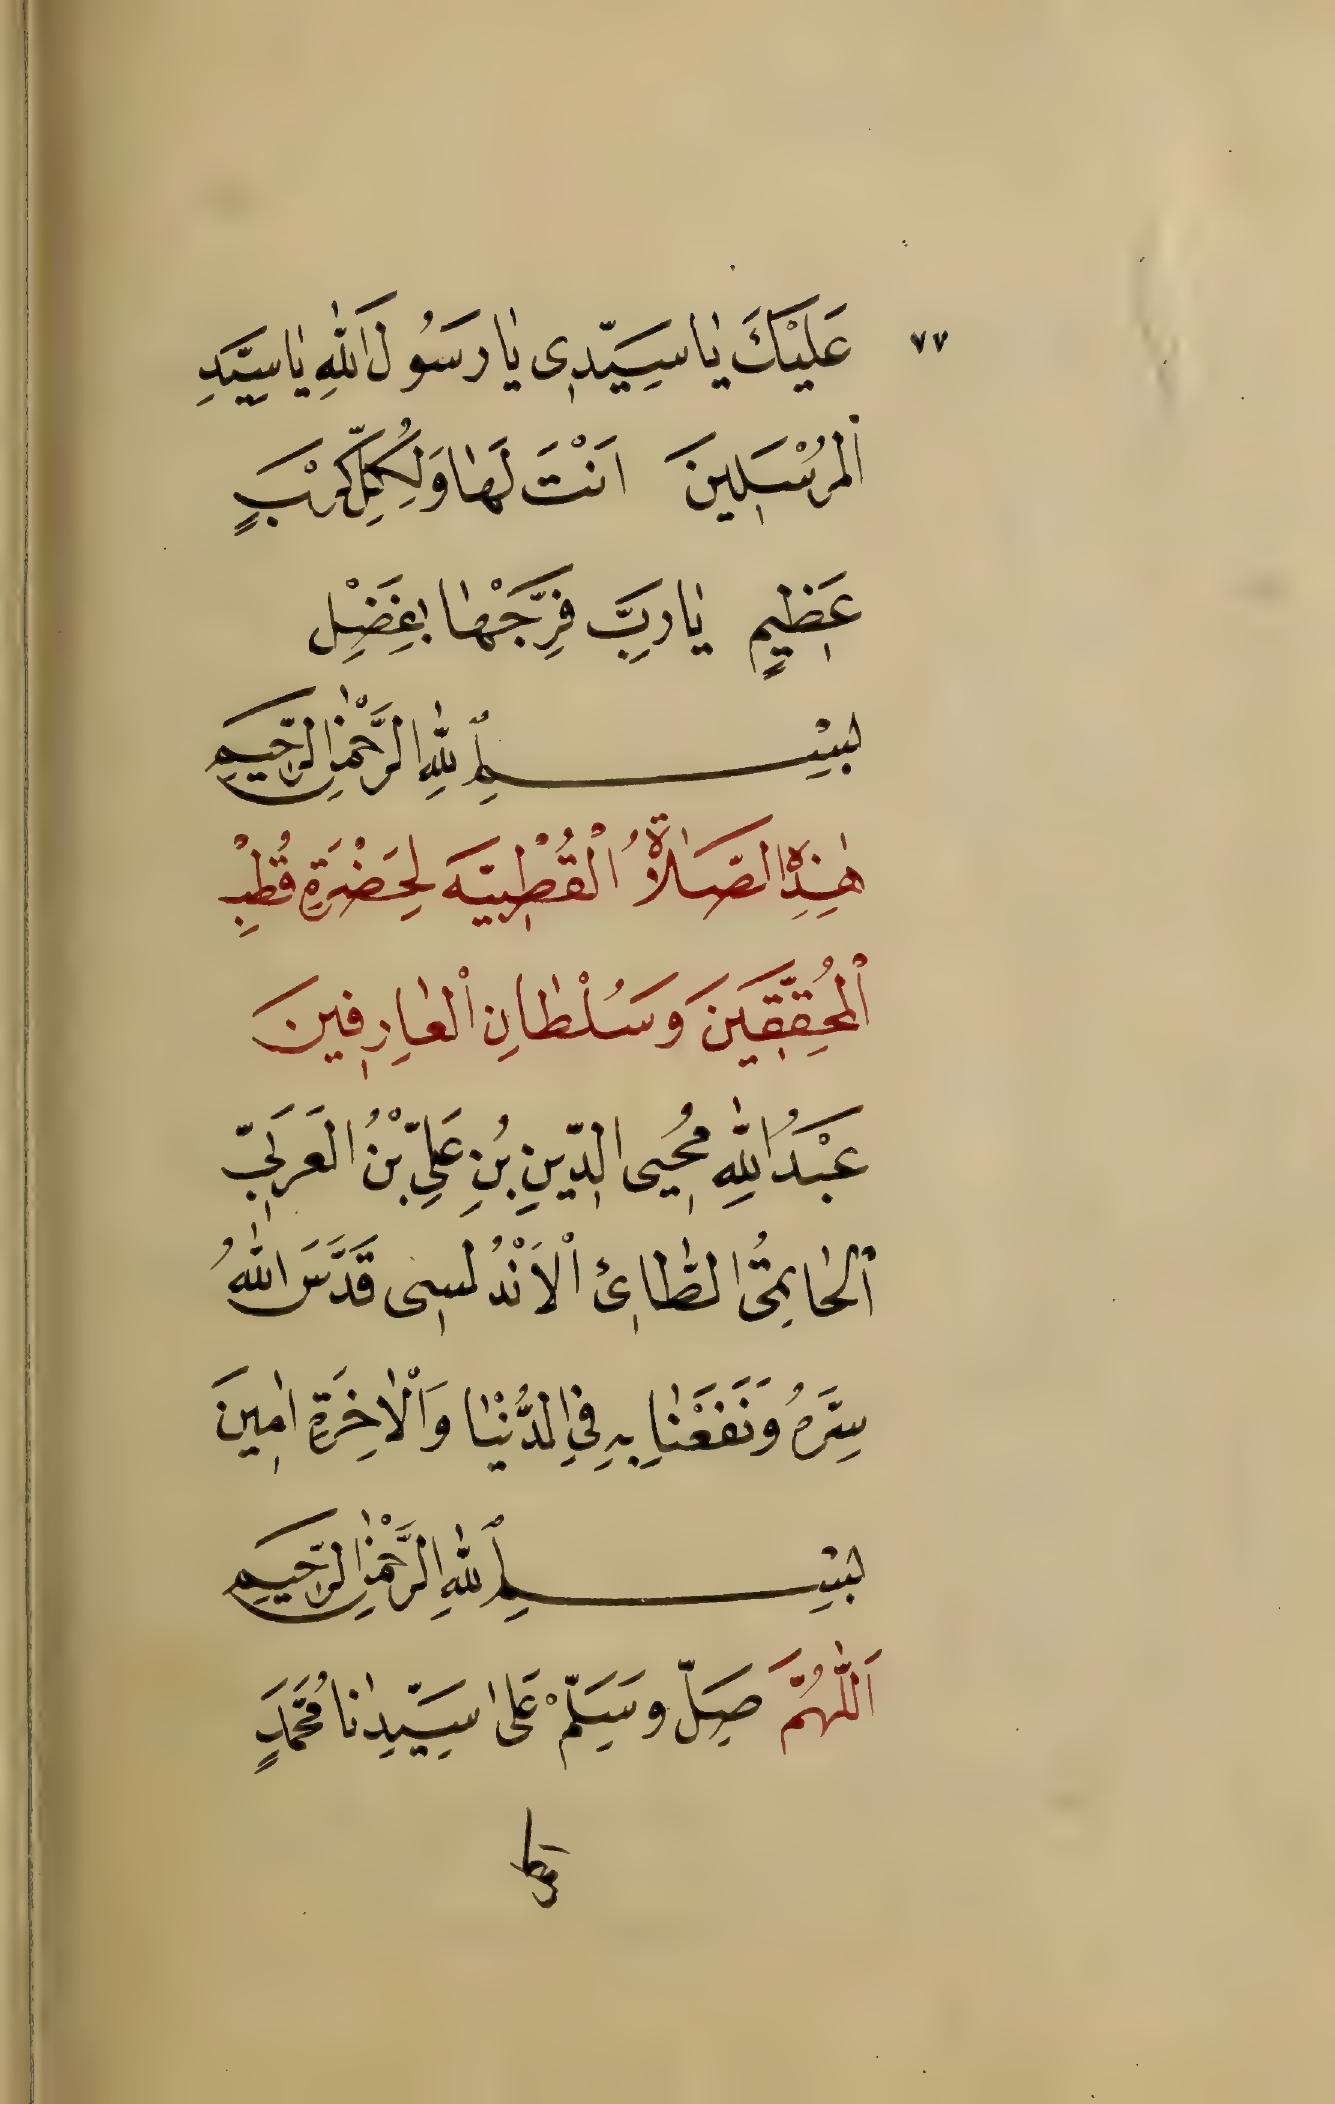 ٧٧
عَلَيْكَ يَا سَيِّدِى يَا رَسُولَ اللهِ يَا سَيِّدَ
الْمُرْسَلِينَ اَنْتَ لَهَا وَلِكُلِّ كَرْبٍ
عَظِيمٍ يَا رَبِّ فَرِّجْهَا بِفَضْلِ
بِسْمِ اللهِ الرَّحْمٰنِ الرَّحِيمِ
هٰذِهِ الصَّلَاةُ الْقُطْبِيَّه لِحَضْرَةِ قُطْبِ
الْمُحَقِّقِينَ وَسُلْطَانِ الْعَارِفِينَ
عَبْدُ اللهِ مُحْيِى الدِّينِ بْنِ عَلِيِّ بْنُ الْعَرَبِيِّ
الْحَاتِمِيُّ الطَّائِ الْاَنْدُلسِى قَدَّسَ اللهُ
سِرَّهُ وَنَفَعَنَا بِهِ فِى الدُّنْيَا وَالْاٰخِرَةِ اٰمِينَ
بِسْمِ اللهِ الرَّحْمٰنِ الرَّحِيمِ
اَللّٰهُمَّ صَلِّ وَسَلِّمْ عَلٰى سَيِّدِنَا مُحَمَّدٍ